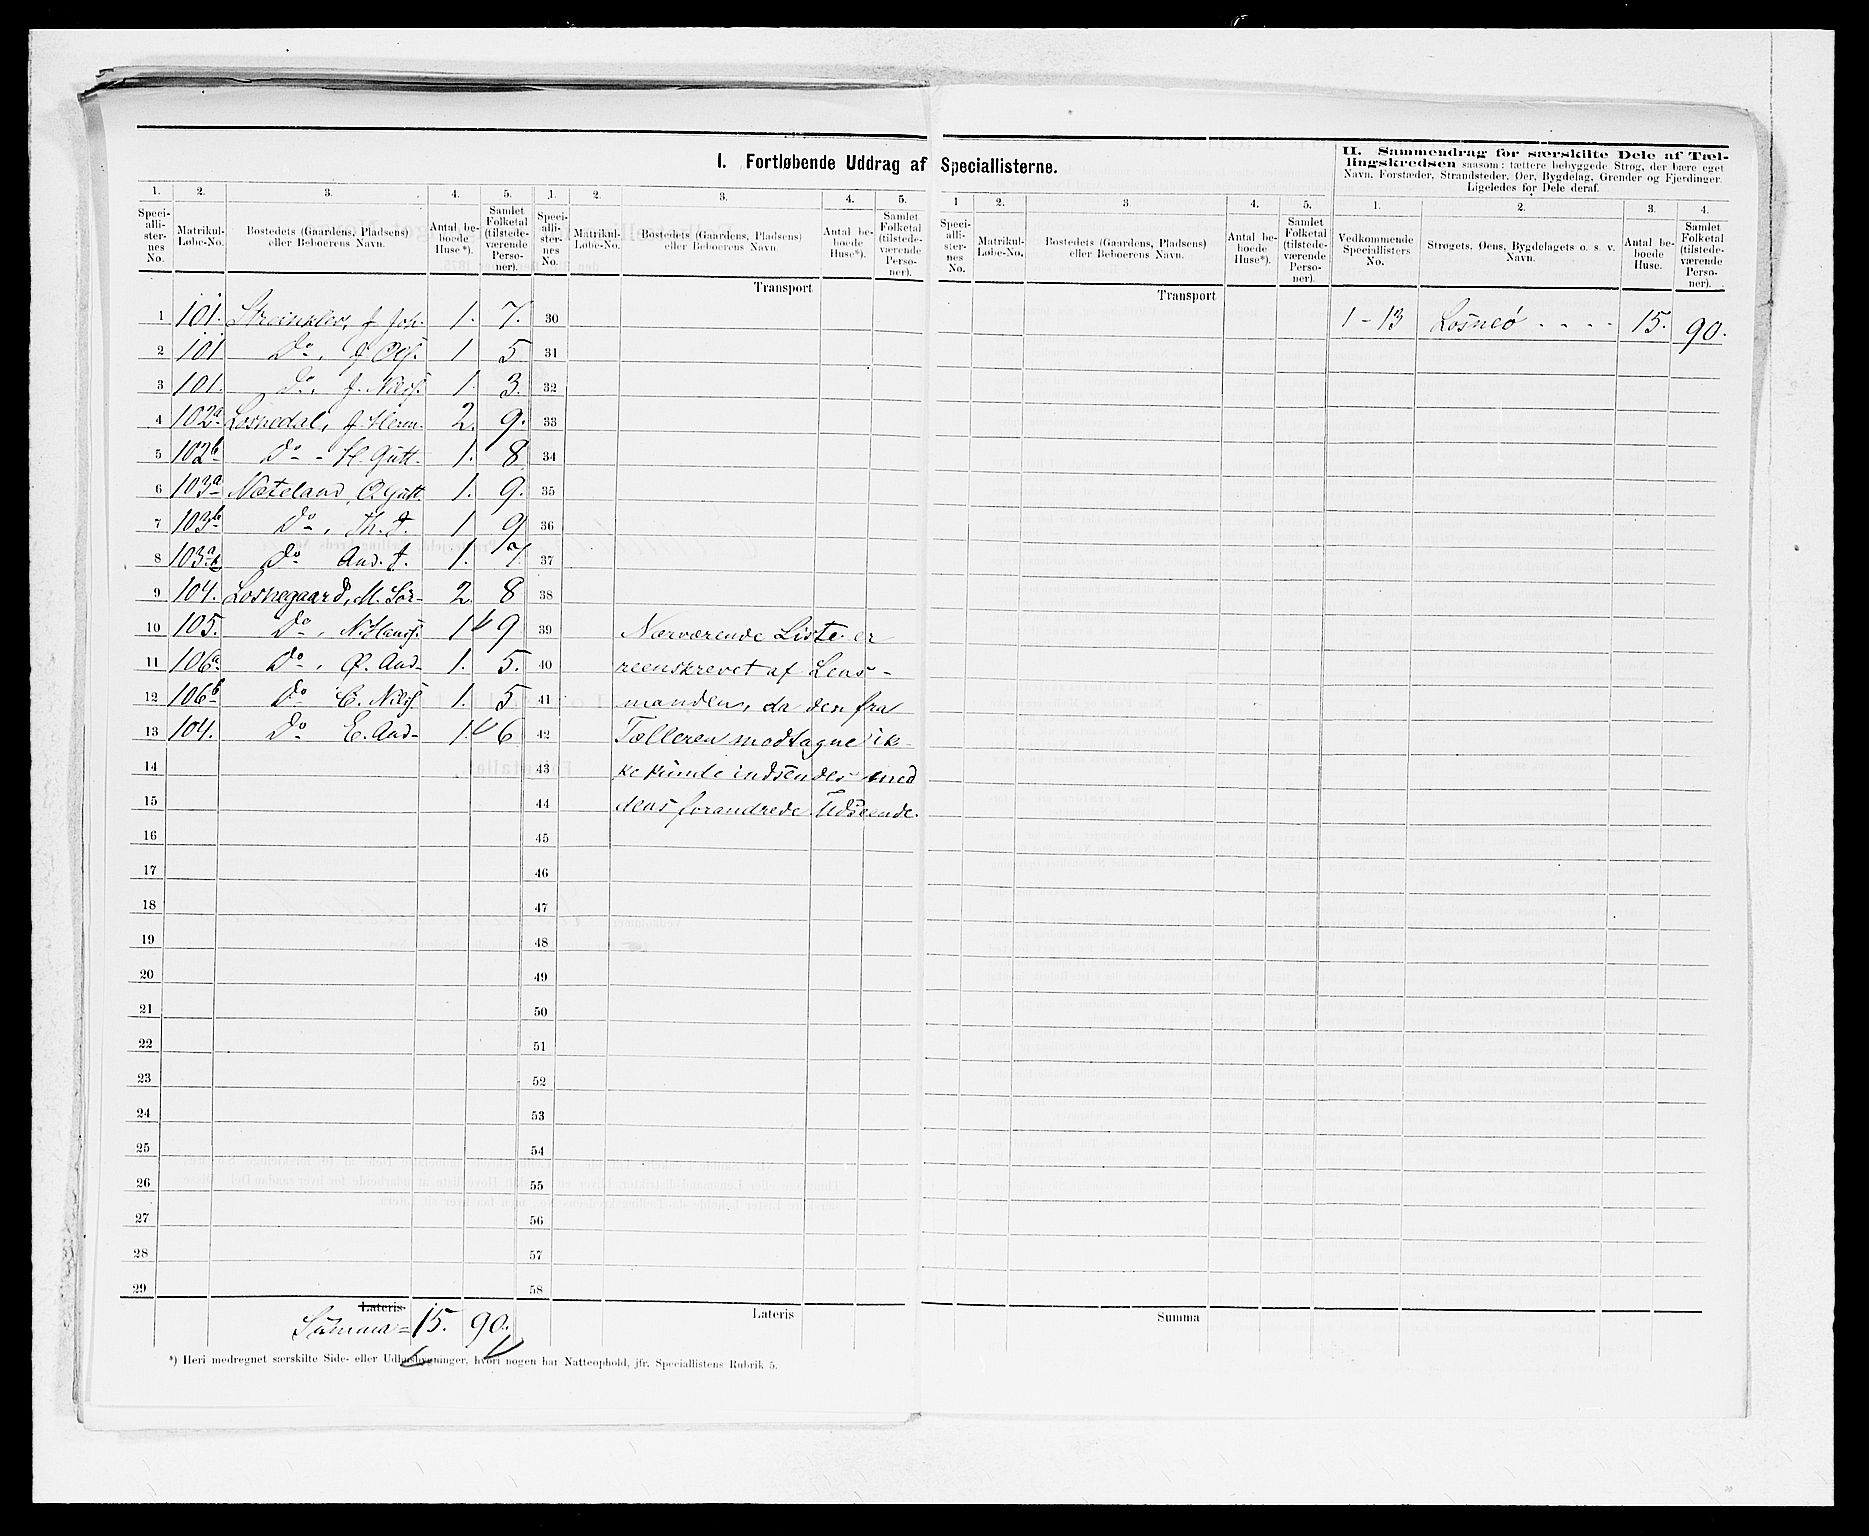 I. Fortløbende Uddrag af Speciallisterne.
II. Sammendrag for særskilte Dele af Tæl-
lingskredsen saasom: tættere bebyggede Strøg, der bære eget
Navn, Forstæder, Strandsteder, Øer, Bygdelag, Grender og Fjerdinger.
Ligeledes for Dele deraf.
1. 2. 3. 4. 5. 1. 2. 3. 4. 5. 1 2. 3. 4. 5. 1. 2. 3. 4.
Speciallisternes No. Matrikul-Løbe-No. Bostedets (Gaardens, Pladsens) eller Beboerens Navn. Antal beboede Huse*). Samlet Folketal (tilstedeværende Personer).
Speciallisternes No. Matrikul-Løbe-No. Bostedets (Gaardens, Pladsens) eller Beboerens Navn. Antal beboede Huse*). Samlet Folketal (tilstedeværende Personer).
Speciallisternes No. Matrikul-Løbe-No. Bostedets (Gaardens, Pladsens) eller Beboerens Navn. Antal beboede Huse*). Samlet Folketal (tilstedeværende Personer).
Vedkommende Speciallisters No. Strøgets, Øens, Bygdelagets o. s. v. Navn. Antal beboede Huse. Samlet Folketal (tilstedeværende Personer).
Transport
Transport
1 101. J. Joh. 1. 7. 30
1-13 Losneö . . . . 15. 90.
2 101 Do, J. Ols. 1 5 31
3 101. Do, J. Nils. 1. 3. 32
4 102a Losnedal, J. Herm. 2. 9. 33
5 102b Do - H. Gutt. 1. 8 34
6 103a Næteland, O. Gutt. 1. 9. 35
7 103b Do, Th. J. 1 9 36
8 103a Do And. J. 1. 7. 37
9 104. Losnegaard, M. Sør- 2. 8 38
10 105. Do, N. Hans. 1 9 39 Nærværende Liste er
11 106a Do, Ø. And- 1. 5. 40 reenskrevet af Lens-
12 106b Do C. Nils. 1. 5 41 manden, da den fra
13 104. Do E. And- 1. 6 42 Tælleren modtagne ik-
14 43 ke kunde indsendes med
15 44 dens forandrede Udseende.
16 45
17 46
18 47
19 48
20 49
21 50
22 51
23 52
24 53
25 54
26 55
27 56
28 57
29 58
Lateris Lateris Summa
Summa = 15. 90.
*) Heri medregnet særskilte Side- eller Udhusbygninger, hvori nogen har Natteophold, jfr. Speciallistens Rubrik 5.